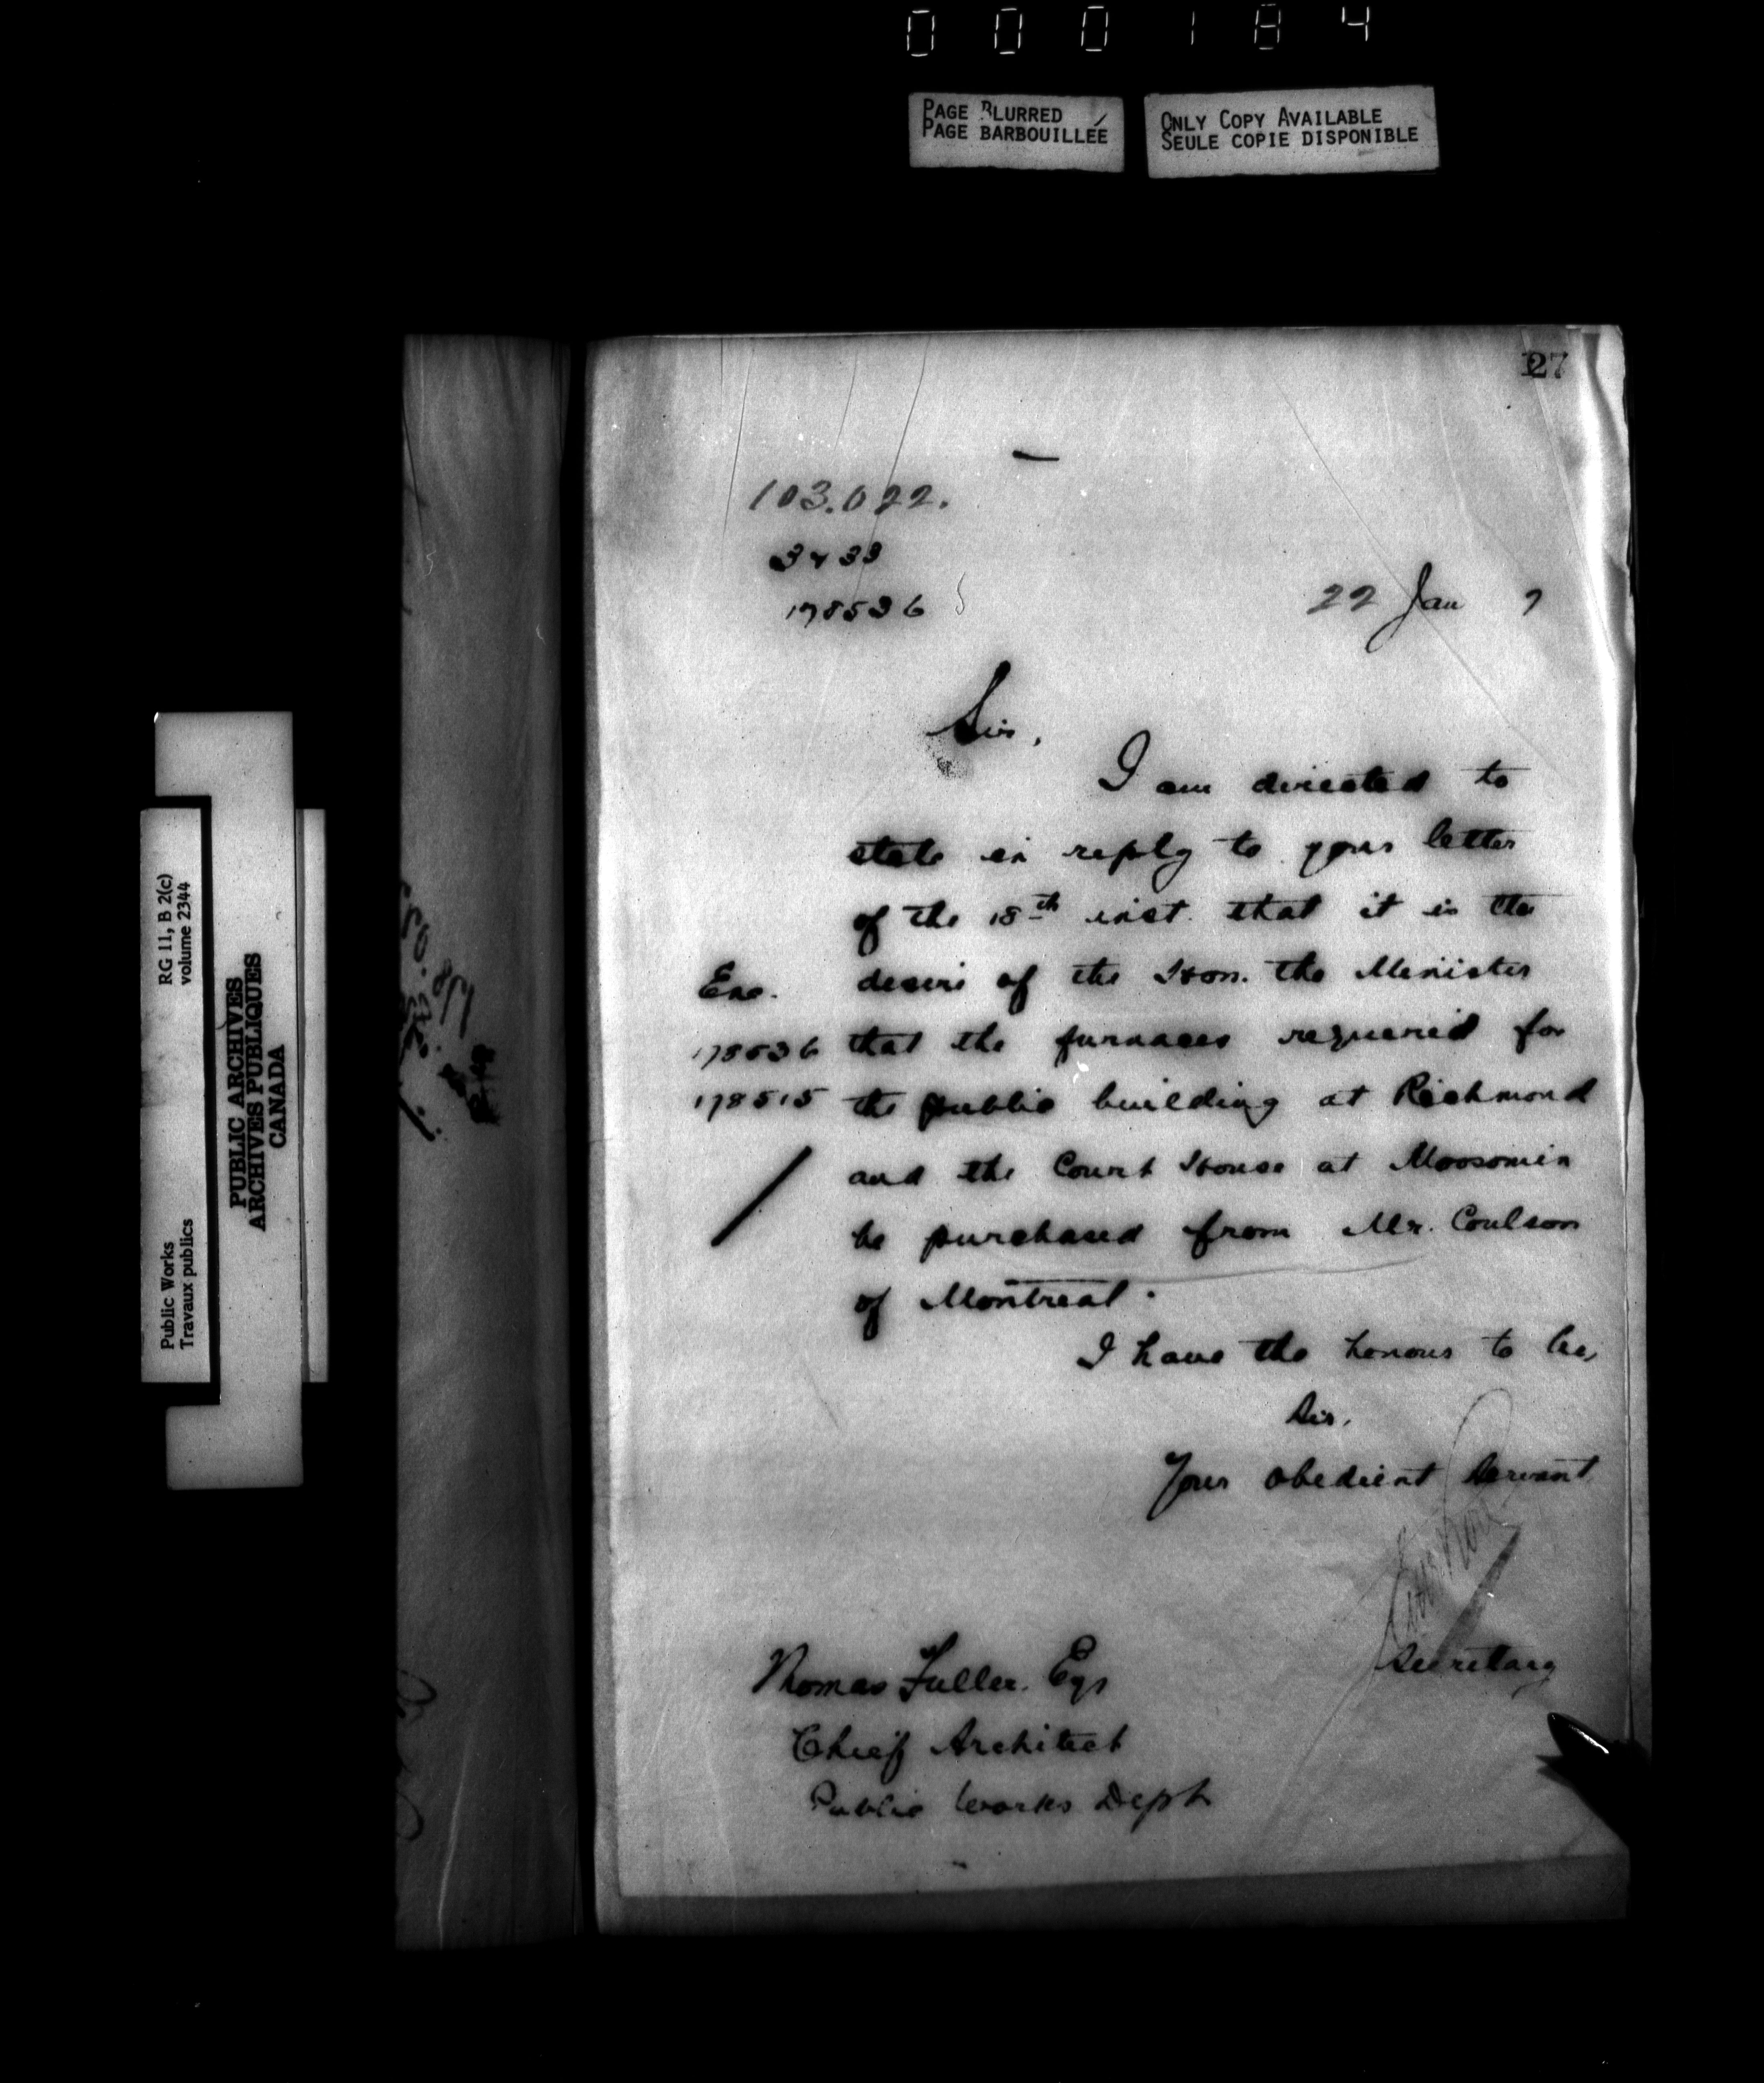 000184
PAGE BLURRED
PAGE BARBOUILLÉE
ONLY COPY AVAILABLE
SEULE COPIE DISPONIBLE
RG 11, B 2(c)
volume 2344
Public Works
Travaux publics
PUBLIC ARCHIVES
ARCHIVES PUBLIQUES
CANADA
127
103.022.
3433
178536
22 Jan 7
Sir,
I am directed to
state in reply to your letter
of the 18th inst. that it is the
Enc. desire of the Hon. the Minister
178536 that the furnaces required for
178515 the public building at Richmond
and the Court House at Moosomin
be purchased from Mr. Coulson
of Montreal.
I have the honour to be,
Sir,
Your obedient Servant
Secretary
Thomas Fuller. Eqs
Chief Architect
Public Works Dept